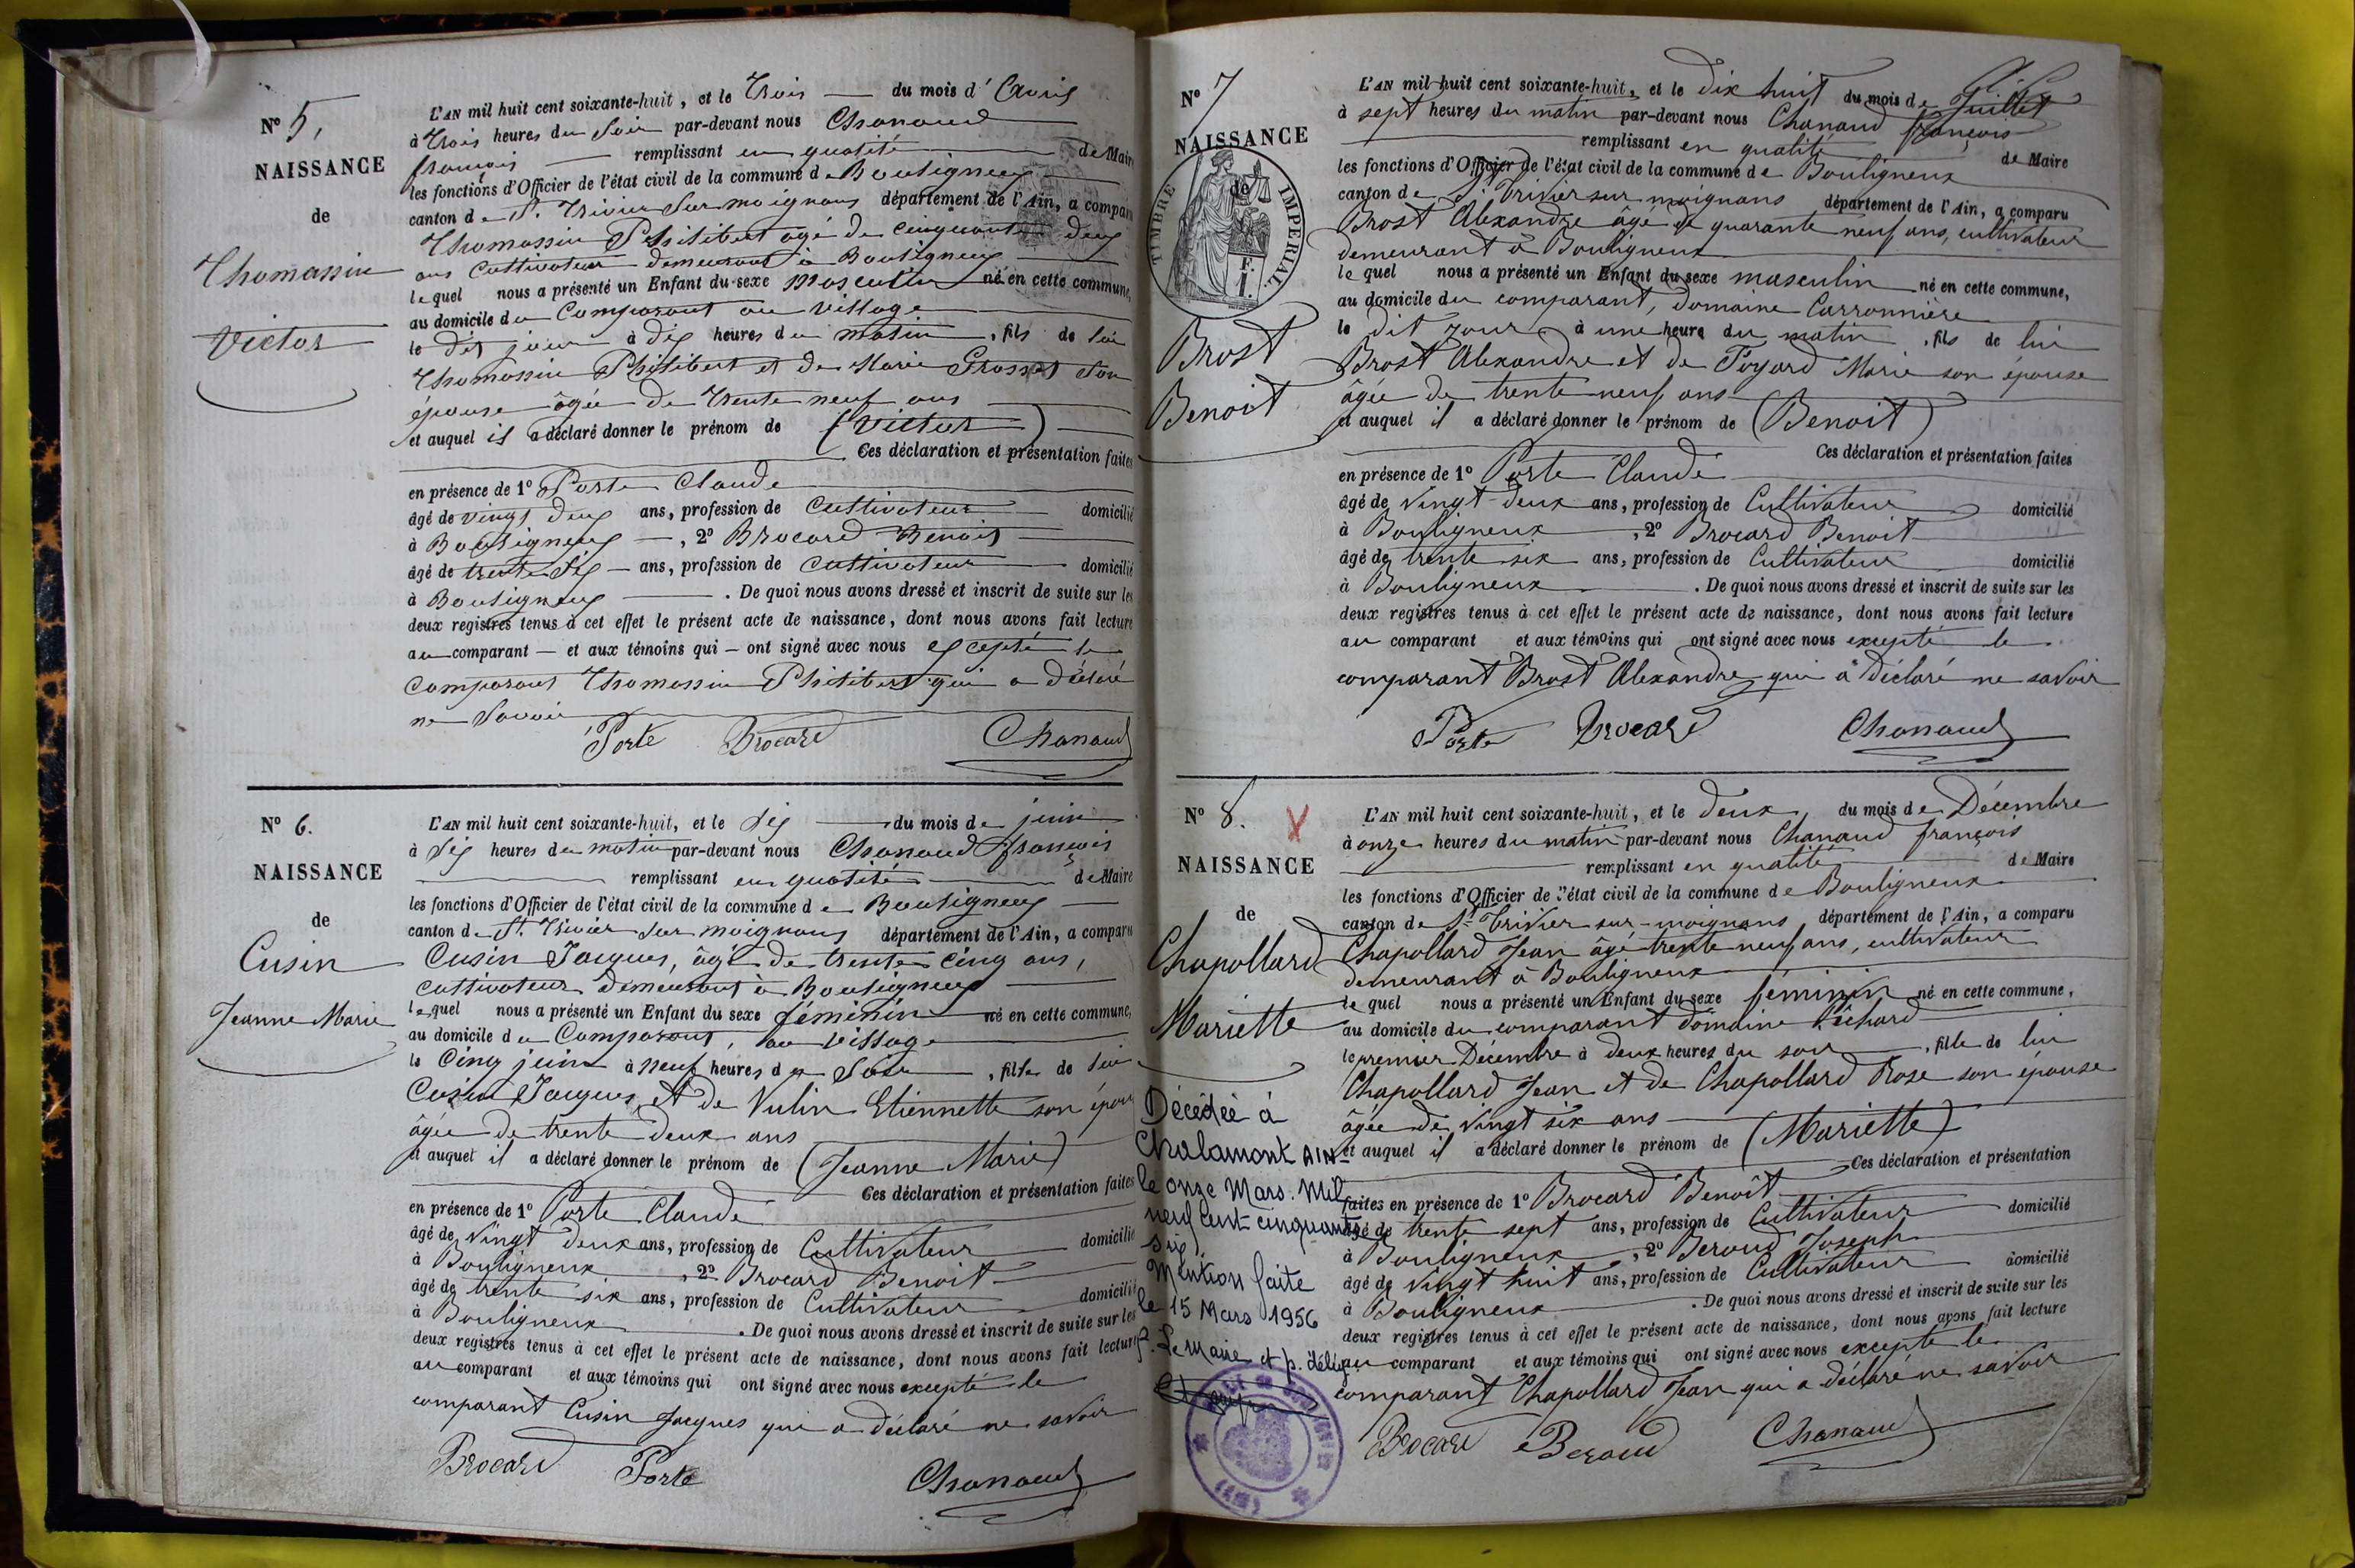 N° 5,
NAISSANCE
de
Thomassin
Victor
L'AN mil huit cent soixante-huit, et le Trois du mois d'Avril
à Trois heures du Soir par-devant nous Chanaud
françois remplissant en qualité de Maire
les fonctions d'Officier de l'état civil de la commune de Bouligneux
canton de St. Trivier Sur moignans département de l'Ain, a comparu
Thomassin Philibert agé de cinquante deux
ans Cultivateur demeurant à Bouligneux
lequel nous a présenté un Enfant du sexe Masculin né en cette commune,
au domicile du Comparant au village
le dit jour à dix heures du matin, fils de lui
Thomassin Philibert et de Marie Grosset Son
épouse âgée de Trente neuf ans
et auquel il a déclaré donner le prénom de (Victor)
Ces déclaration et présentation faites
en présence de 1° Porte Claude
âgé de vingt deux ans, profession de Cultivateur domicilié
à Bouligneux, 2° Brocard Benoit
âgé de trente Six ans, profession de Cultivateur domicilié
à Bouligneux. De quoi nous avons dressé et inscrit de suite sur les
deux registres tenus à cet effet le présent acte de naissance, dont nous avons fait lecture
au comparant et aux témoins qui ont signé avec nous excepté le
comparant Thomassin Philibert qui a déclaré
ne Savoir
Porte Brocard Chanaud
N° 6.
NAISSANCE
de
Cusin
Jeanne Marie
L'AN mil huit cent soixante-huit, et le Six du mois de juin
à Six heures du matin par-devant nous Chanaud françois
remplissant en qualité de Maire
les fonctions d'Officier de l'état civil de la commune de Bouligneux
canton de St. Trivier Sur moignans département de l'Ain, a comparu
Cusin Jacques, âgé de trente cinq ans,
Cultivateur demeurant à Bouligneux
lequel nous a présenté un Enfant du sexe féminin né en cette commune,
au domicile du Comparant, au village
le Cinq juin à neuf heures du Soir, fille de lui
Cusin Jacques et de Vulin Etiennette son épouse
âgée de trente deux ans
et auquel il a déclaré donner le prénom de (Jeanne Marie)
Ces déclaration et présentation faites
en présence de 1° Porte Claude
âgé de vingt deux ans, profession de Cultivateur domicilié
à Bouligneux, 2° Brocard Benoit
âgé de trente six ans, profession de Cultivateur domicilié
à Bouligneux. De quoi nous avons dressé et inscrit de suite sur les
deux registres tenus à cet effet le présent acte de naissance, dont nous avons fait lecture
au comparant et aux témoins qui ont signé avec nous excepté le
comparant Cusin Jacques qui a déclaré ne savoir
Brocard Porte Chanaud
N° 7
NAISSANCE
de
TIMBRE IMPERIAL
1 F.
Brost
Benoit
L'AN mil huit cent soixante-huit, et le dix huit du mois de Juillet
à sept heures du matin par-devant nous Chanaud françois
remplissant en qualité de Maire
les fonctions d'Officier de l'état civil de la commune de Bouligneux
canton de St. Trivier sur moignans département de l'Ain, a comparu
Brost Alexandre âgé de quarante neuf ans, cultivateur
demeurant à Bouligneux
lequel nous a présenté un Enfant du sexe masculin né en cette commune,
au domicile du comparant, domaine Carronnière
le dit jour à une heure du matin, fils de lui
Brost Alexandre et de Poyard Marie son épouse
âgée de trente neuf ans
et auquel il a déclaré donner le prénom de (Benoit)
Ces déclaration et présentation faites
en présence de 1° Porte Claude
âgé de vingt-deux ans, profession de Cultivateur domicilié
à Bouligneux, 2° Brocard Benoit
âgé de trente six ans, profession de Cultivateur domicilié
à Bouligneux. De quoi nous avons dressé et inscrit de suite sur les
deux registres tenus à cet effet le présent acte de naissance, dont nous avons fait lecture
au comparant et aux témoins qui ont signé avec nous excepté le
comparant Brost Alexandre qui a déclaré ne savoir
Porte Brocard Chanaud
N° 8.
NAISSANCE
de
Chapollard
Mariette
Décédée à
Chalamont AIN
le onze Mars. Mil
neuf cent cinquante
six
Mention faite
le 15 Mars 1956
P. Le Maire et p. délég
L'AN mil huit cent soixante-huit, et le deux du mois de Décembre
à onze heures du matin par-devant nous Chanaud françois
remplissant en qualité de Maire
les fonctions d'Officier de l'état civil de la commune de Bouligneux
canton de St Trivier sur-moignans département de l'Ain, a comparu
Chapollard Jean âgé trente neuf ans, cultivateur
demeurant à Bouligneux
lequel nous a présenté un Enfant du sexe féminin né en cette commune,
au domicile du comparant domaine Péchard
le premier Décembre à deux heures du soir, fille de lui
Chapollard Jean et de Chapollard Rose son épouse
âgée de vingt six ans
et auquel il a déclaré donner le prénom de (Mariette)
Ces déclaration et présentation
faites en présence de 1° Brocard Benoît
âgé de trente sept ans, profession de Cultivateur domicilié
à Bouligneux, 2° Beroud Joseph
âgé de vingt huit ans, profession de Cultivateur domicilié
à Bouligneux. De quoi nous avons dressé et inscrit de suite sur les
deux registres tenus à cet effet le présent acte de naissance, dont nous avons fait lecture
au comparant et aux témoins qui ont signé avec nous excepté le
comparant Chapollard Jean qui a déclaré ne savoir
Brocard Beroud Chanaud